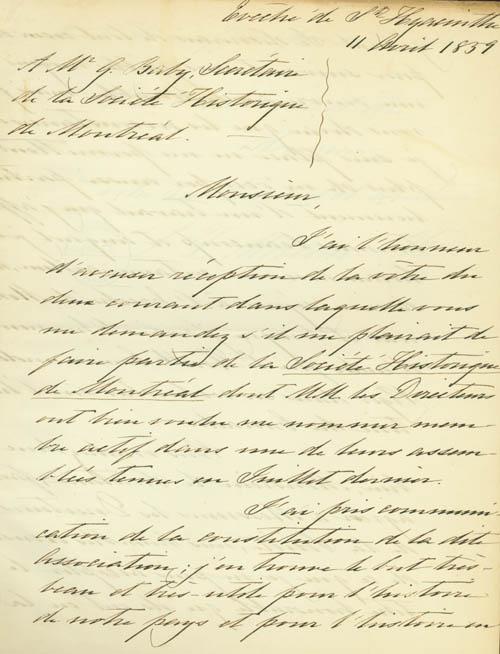 Evêché de St Hyacinthe
11 Avril 1859
A Mr G. Baby, Secrétaire
de la Société Historique
de Montréal.
Monsieur,
J'ai l'honneur
d'accuser réception de la vôtre du
deux courant dans laquelle vous
me demandez s'il me plairait de
faire partie de la Société Historique
de Montréal dont MM. les Directeurs
ont bien voulu me nommer mem-
bre actif dans une de leurs assem-
blées tenues en Juillet dernier.
J'ai pris communi-
cation de la constitution de la dite
association; j'en trouve le but très-
beau et très-utile pour l'histoire
de notre pays et pour l'histoire en